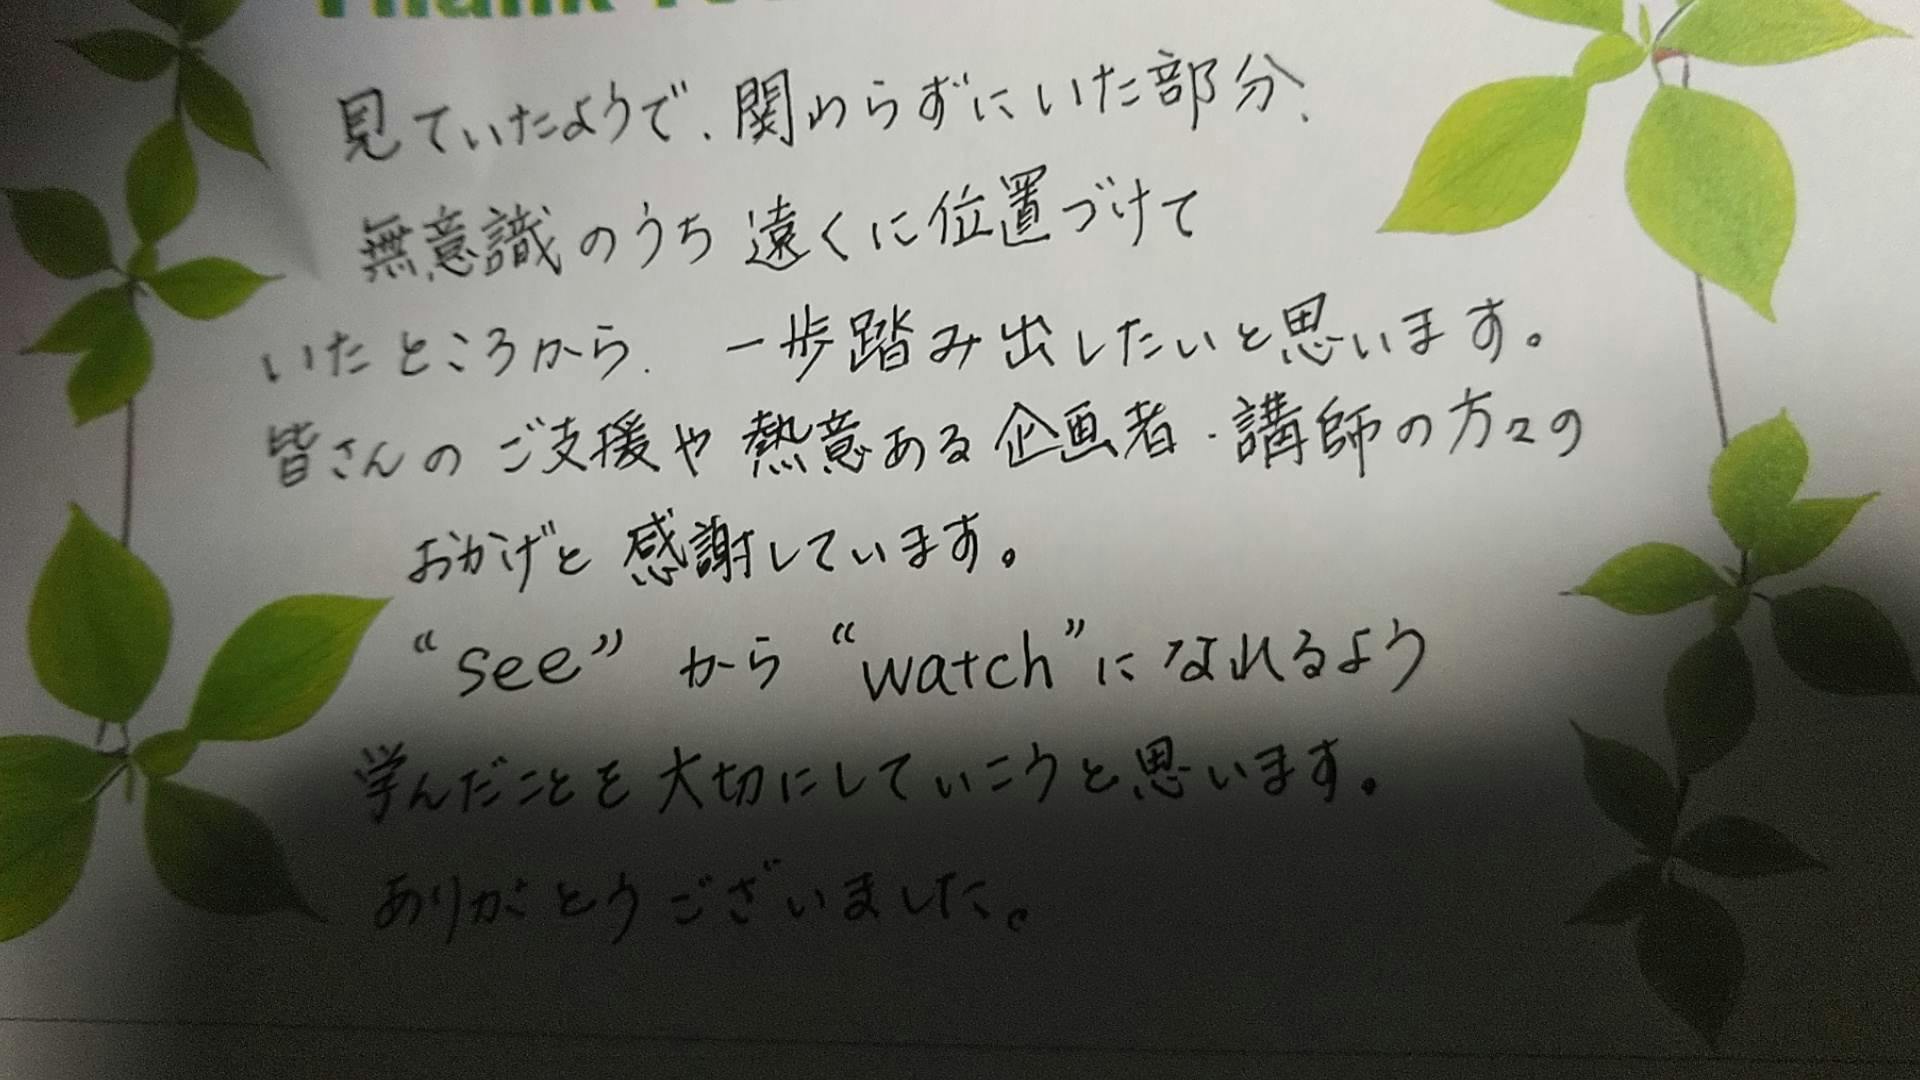 Thank You
見ていたようで、関わらずにいた部分、
無意識のうち遠くに位置づけて
いたところから、一歩踏み出したいと思います。
皆さんのご支援や熱意ある企画者・講師の方々の
おかげと感謝しています。
“see”から“watch”になれるよう
学んだことを大切にしていこうと思います。
ありがとうございました。